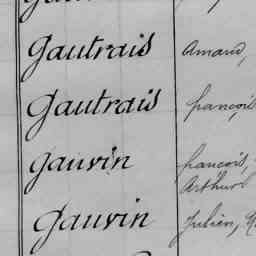 Gautrais Amand,
Gautrais françois
Gauvin françois,
Arthur
Gauvin Julien,